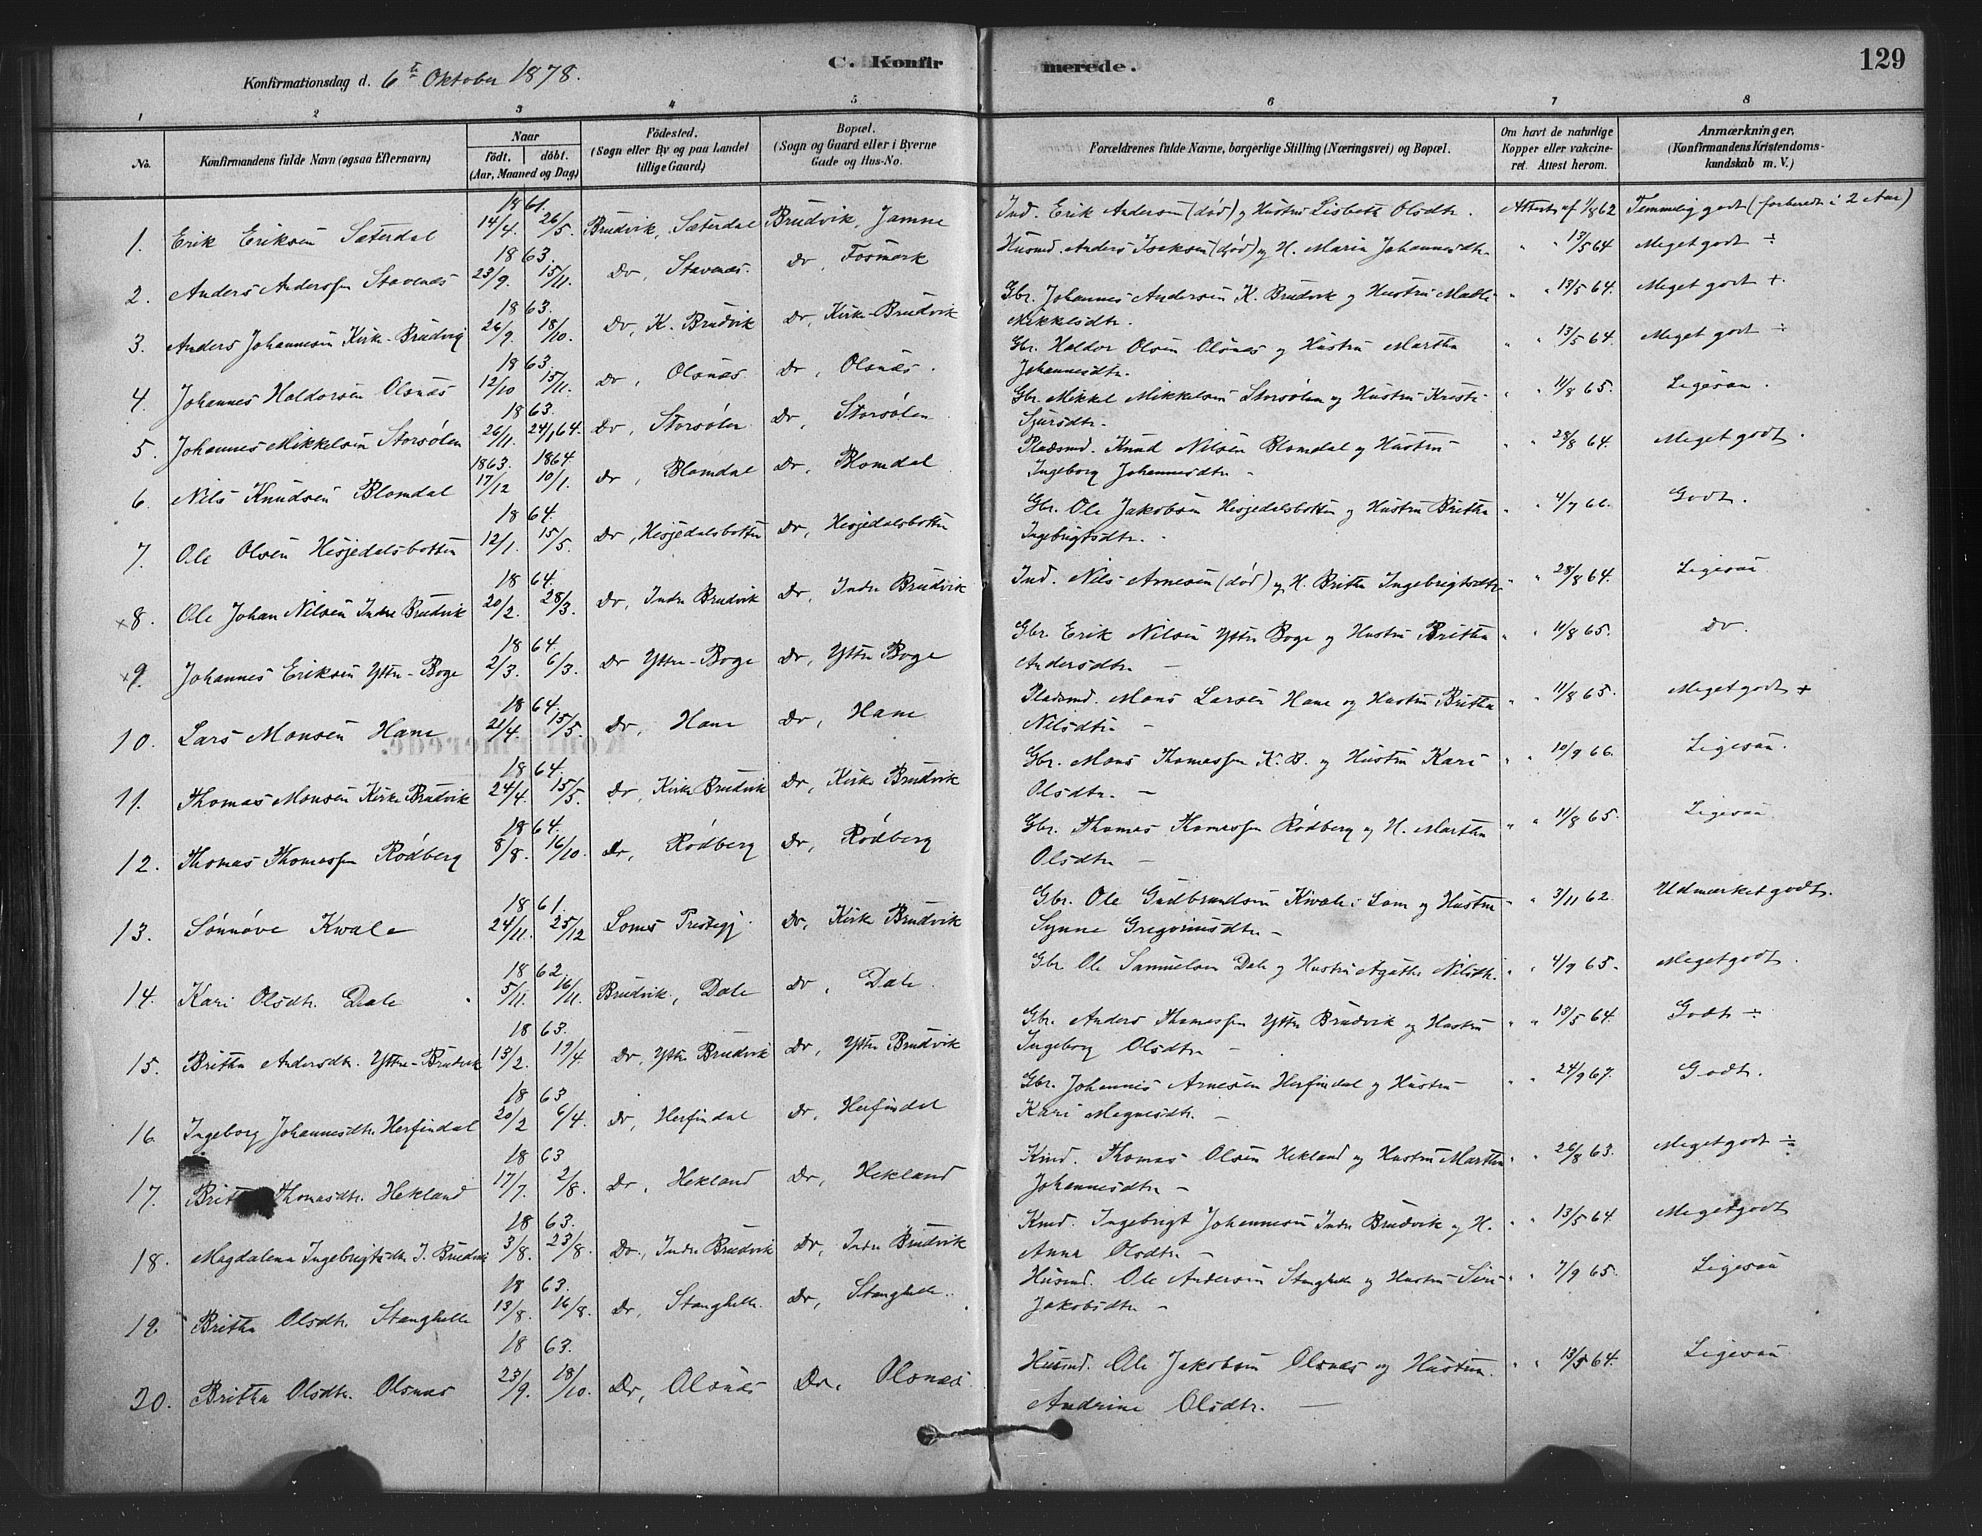 129
C. Konfirmerede.
Konfirmationsdag d. 6te Oktober 1878.
1 2 3 4 5 6 7 8
No. | Konfirmandens fulde Navn (ogsaa Efternavn) | Naar födt. döbt. (Aar, Maaned og Dag) | Födested. (Sogn eller By og paa Landet tillige Gaard) | Bopæl. (Sogn og Gaard eller i Byerne Gade og Hus-No. | Forældrenes fulde Navne, borgerlige Stilling (Næringsvei) og Bopæl. | Om havt de naturlige Kopper eller vakcineret. Attest herom. | Anmærkninger. (Konfirmandens Kristendomskundskab m. V.)
1. Erik Eriksen Sæterdal | 1861. 14/4. 26/5. | Brudvik, Sæterdal | Brudvik, Jamne | Ind. Erik Andersen (död) og Hustru Lisbeth Olsdtr. | Attest af 1/8 62 | Temmelig godt (forberedt i 2 Aar)
2. Anders Anderssen Stavenæs | 1863. 23/9. 15/11. | Do, Stavenæs. | Do, Fosmark | Husmd. Anders Isaksen (död) og H. Maria Johannesdtr. | " " 13/5 64 | Meget godt ÷
3. Anders Johannesen Kirke-Brudvig | 1863. 26/9. 18/10. | Do, K. Brudvik | Do, Kirke-Brudvik | Gbr. Johannes Andersen K. Brudvik og Hustru Malli Mikkelsdtr. | " " 13/5 64. | Meget godt +.
4. Johannes Haldorsen Olsnæs | 1863. 12/10 15/11. | Do, Olsnæs. | Do, Olsnæs. | Gbr. Haldor Olsen Olsnæs og Hustru Martha Johannesdtr. | " " 13/5 64. | Meget godt ÷
5. Johannes Mikkelsen Storsölen | 1863. 26/11. 24/1 64. | Do, Storsölen | Do, Storsölen | Gbr. Mikkel Mikkelsen Storsölen og Hustru Kristi Sjursdtr. | " " 11/8 65. | Ligesaa.
6. Nils Knudsen Blomdal | 1863. 17/12 1864 10/1. | Do, Blomdal | Do, Blomdal | Pladsmd. Knud Nilsen Blomdal og Hustru Ingeborg Johannesdtr. | " " 28/8 64. | Meget godt.
7. Ole Olsen Hesjedalsbotten | 1864. 12/1. 15/5. | Do, Hesjedalsbotten | Do, Hesjedalsbotten | Gbr. Ole Jakobsen Hesjedalsbotten og Hustru Britha Ingebrigtsdtr. | " " 4/7 66. | Godt.
×8. Ole Johan Nilsen Indre Brudvik | 1864. 20/2. 28/3. | Do, Indre Brudvik | Do, Indre Brudvik | Ind. Nils Arnesen (död) og H. Britha Ingebrigtsdtr | " " 28/8 64. | Ligesaa
×9. Johannes Eriksen Yttre-Boge | 1864. 2/3. 6/3. | Do Yttre-Boge | Do, Yttre Boge | Gbr. Erik Nilsen Yttre Boge og Hustru Britha Andersdtr. – | " " 11/8 65. | Do.
10. Lars Monsen Hane | 1864. 21/4. 15/5. | Do, Hane | Do, Hane | Pladsmd. Mons Larsen Hane og Hustru Britha Nilsdtr. – | " " 11/8 65. | Meget godt +
11. Thomas Monsen Kirke Brudvik | 1864. 24/4. 15/5. | Do, Kirke Brudvik | Do, Kirke Brudvik | Gbr. Mons Thomassen K. B. og Hustru Kari Olsdtr. – | " " 10/9 66. | Ligesaa.
12. Thomas Thomassen Rödberg | 1864. 8/8. 16/10. | Do, Rödberg | Do, Rödberg | Gbr. Thomas Thomassen Rödberg og H. Martha Olsdtr – | " " 11/8 65. | Ligesaa.
13. Sönnöve Kwale | 1861. 24/11. 25/12 | Lomes Prestegj. | Do. Kirke Brudvik | Gbr. Ole Gudbrandsen Kwale i Lom og Hustru Synne Gregoriusdtr – | " 3/11 62. | Udmærket godt.
14. Kari Olsdtr. Dale | 1862. 5/11. 16/11. | Brudvik, Dale | Do, Dale. | Gbr Ole Samuelsen Dale og Hustru Agathe Nilsdtr. | " " 4/9 65. | Meget godt.
15. Britha Andersdtr. Yttre-Brudvik | 1863. 13/2. 19/4 | Do, Yttre Brudvik | Do, Yttre Brudvik | Gbr. Anders Thomassen Yttre Brudvik og Hustru Ingeborg Olsdtr. – | " " 13/5 64. | Godt ÷
16. Ingeborg Johannesdtr. Herfindal | 1863 20/2 6/4. | Do, Herfindal | Do, Herfindal | Gbr. Johannes Arnesen Herfindal og Hustru Kari Magnesdtr. – | " " 24/9 67. | Godt.
17. Britha Thomasdtr. Hekland | 1863 17/7. 2/8. | Do, Hekland | Do, Hekland | Kmd. Thomas Olsen Hekland og Hustru Martha Johannesdtr – | " " 26/8 63. | Meget godt ÷
18. Magdalena Ingebrigtsdtr I. Brudvik | 1863. 3/8. 23/8. | Do, Indre Brudvik | Do, Indre Brudvik | Kmd. Ingebrigt Johannesen Indre Brudvik og H. Anna Olsdtr – | " " 13/5 64. | Meget godt
19. Britha Olsdtr. Stanghelle | 1863. 13/8. 16/8. | Do, Stanghelle. | Do, Stanghelle. | Husmd. Ole Andersen Stanghelle og Hustru Siri Jakobsdtr – | " " 7/9 65. | Ligesaa
20. Britha Olsdtr. Olsnæs | 1863. 23/9. 18/10. | Do, Olsnæs | Do, Olsnæs. | Husmd. Ole Jakobsen Olsnæs og Hustru Andrine Olsdtr. – | " " 13/5 64. | Ligesaa